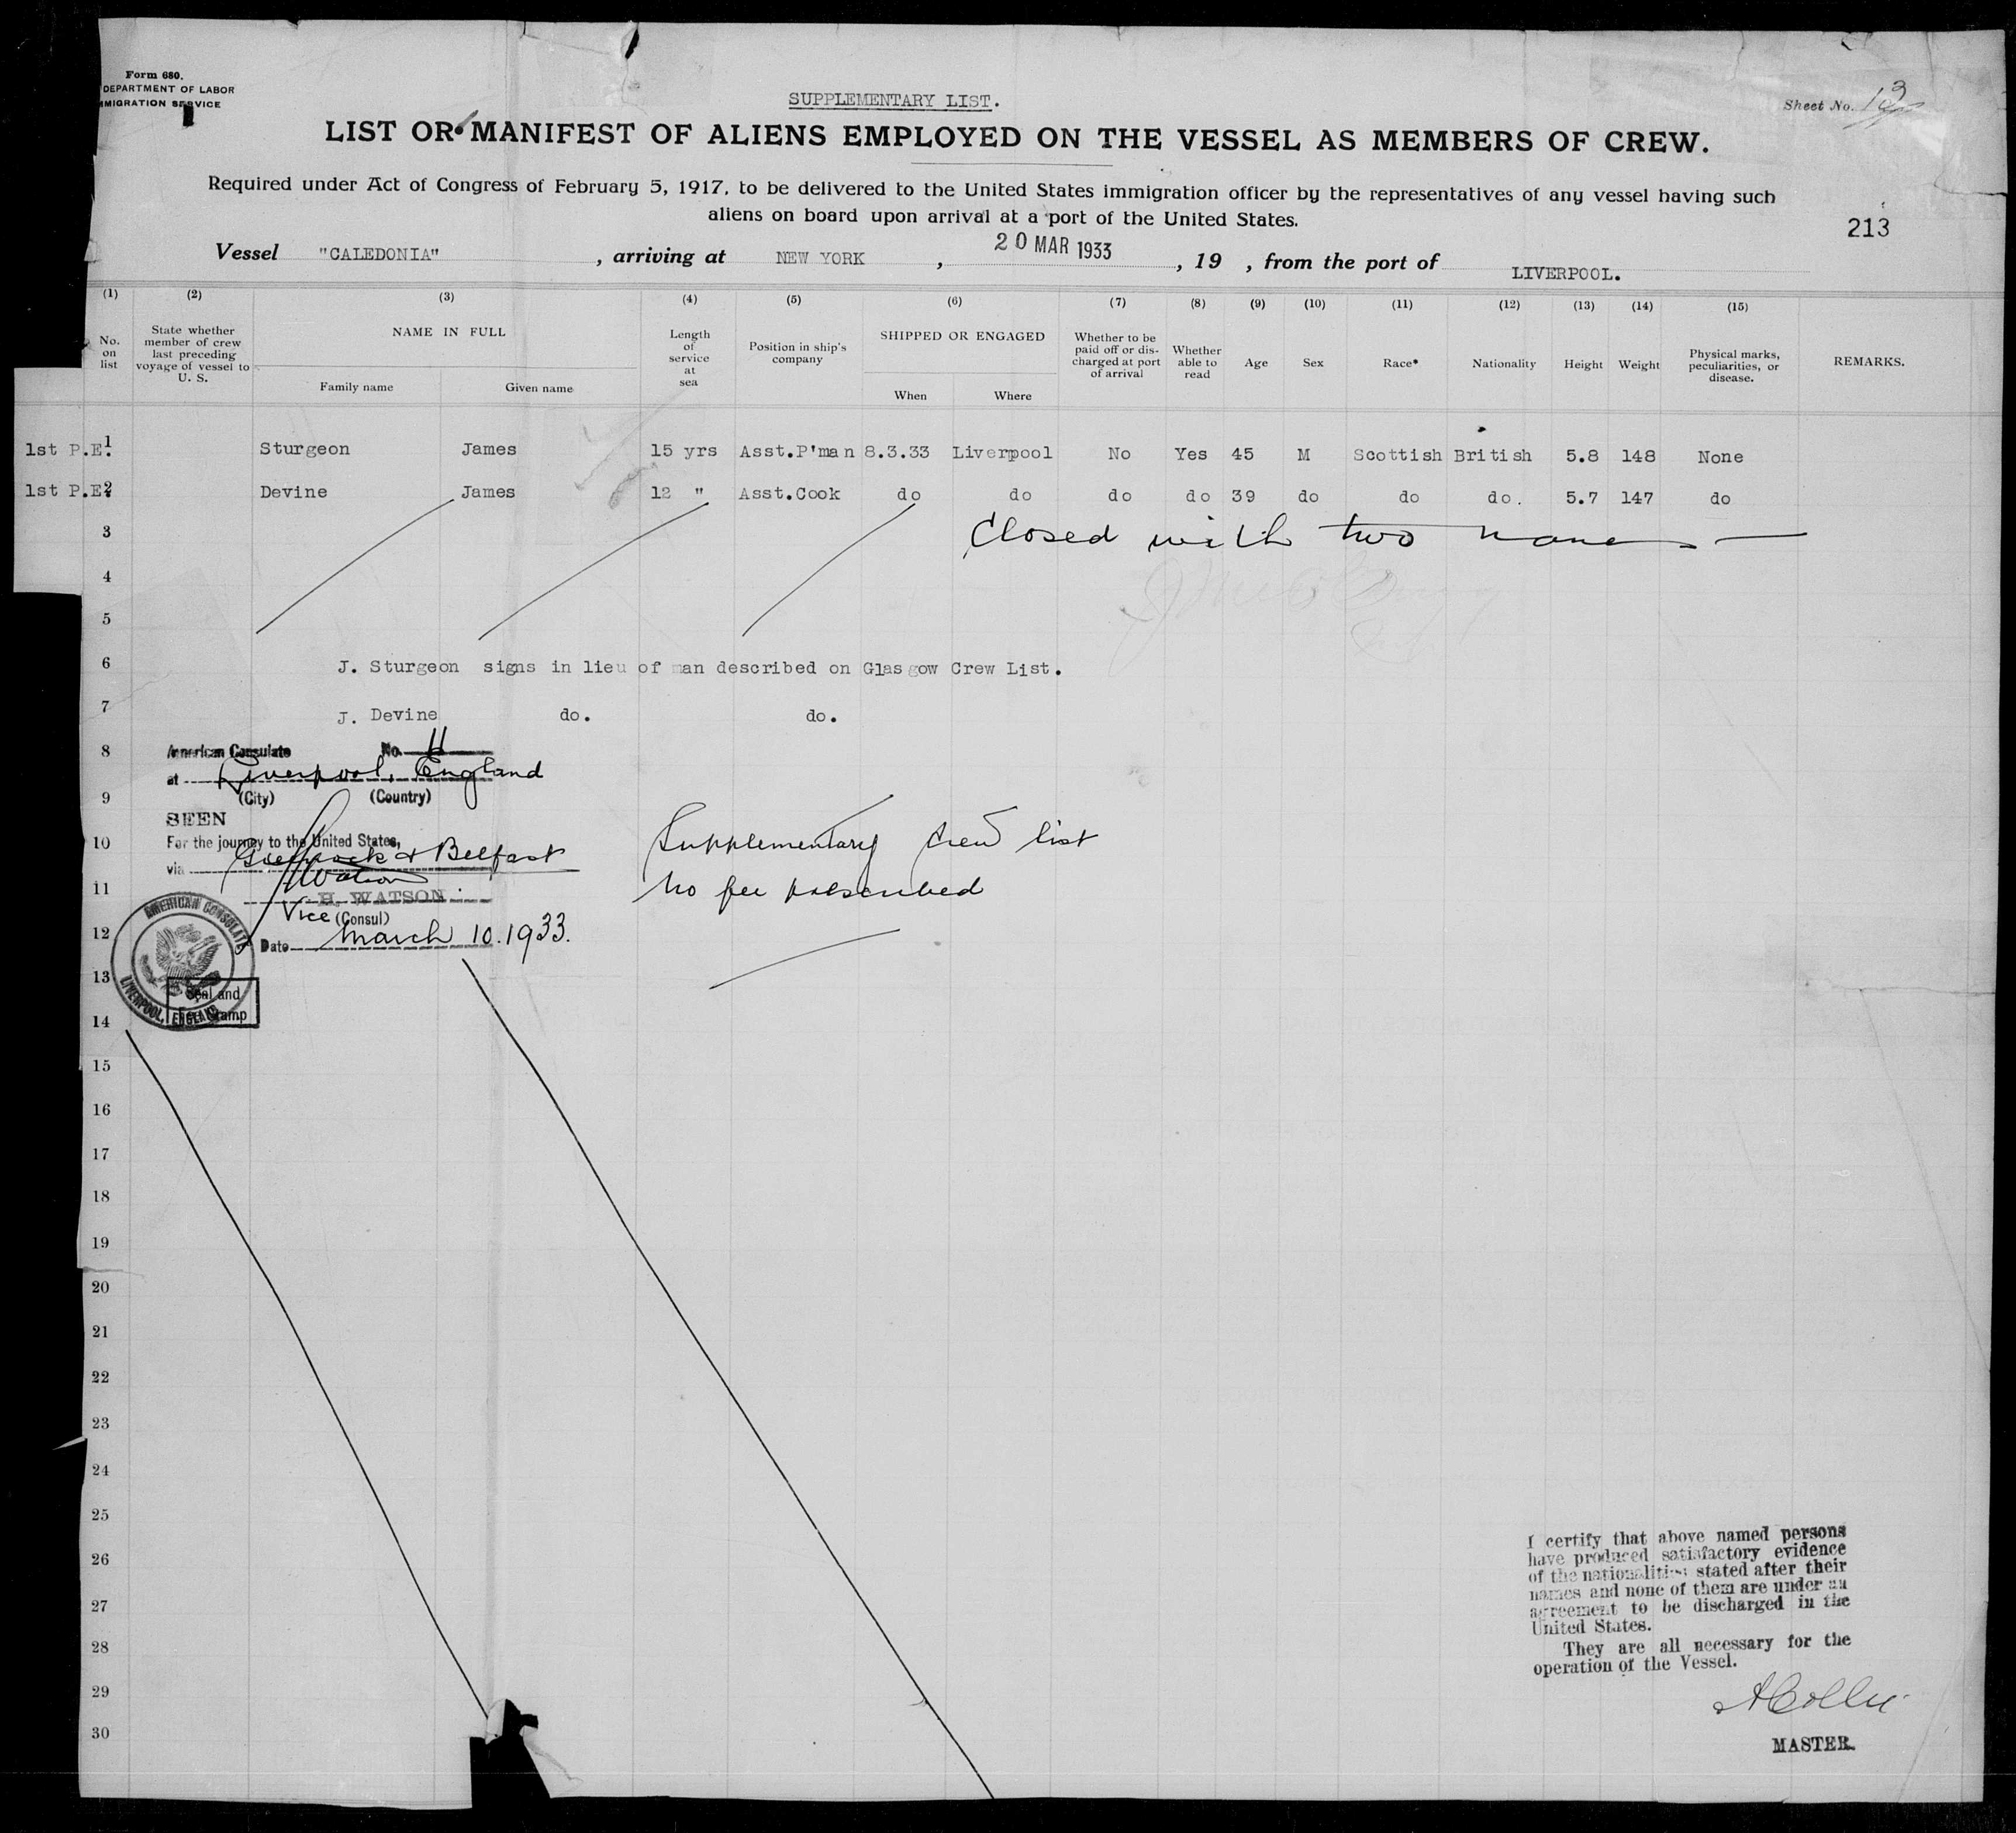 Form 680.
DEPARTMENT OF LABOR
MMIGRATION SERVICE
SUPPLEMENTARY LIST.
Sheet No. 13
LIST OR MANIFEST OF ALIENS EMPLOYED ON THE VESSEL AS MEMBERS OF CREW.
Required under Act of Congress of February 5, 1917, to be delivered to the United States immigration officer by the representatives of any vessel having such
aliens on board upon arrival at a port of the United States.
213
Vessel "CALEDONIA" , arriving at NEW YORK , 20 MAR 1933 , 19 , from the port of LIVERPOOL.
(1) (2) (3) (4) (5) (6) (7) (8) (9) (10) (11) (12) (13) (14) (15)
No. on list
State whether member of crew last preceding voyage of vessel to U. S.
NAME IN FULL
Family name Given name
Length of service at sea
Position in ship's company
SHIPPED OR ENGAGED
When Where
Whether to be paid off or dis-charged at port of arrival
Whether able to read
Age
Sex
Race*
Nationality
Height
Weight
Physical marks, peculiarities, or disease.
REMARKS.
1st P.E. 1 Sturgeon James 15 yrs Asst.P'man 8.3.33 Liverpool No Yes 45 M Scottish British 5.8 148 None
1st P.E. 2 Devine James 12 " Asst.Cook do do do do 39 do do do. 5.7 147 do
3 Closed with two names
4
5
6 J. Sturgeon signs in lieu of man described on Glasgow Crew List.
7 J. Devine do. do.
8 American Consulate No. 11
at Liverpool, England
9 (City) (Country)
SEEN
10 For the journey to the United States,
via Greenock & Belfast
Supplementary crew list
11 No fee prescribed
H. Watson
H. WATSON
Vice (Consul)
12 Date March 10. 1933.
AMERICAN CONSULATE
LIVERPOOL, ENGLAND
13 Seal and
14 Stamp
15
16
17
18
19
20
21
22
23
24
25
26
27
28
29
30
I certify that above named persons
have produced satisfactory evidence
of the nationalities stated after their
names and none of them are under an
agreement to be discharged in the
United States.
They are all necessary for the
operation of the Vessel.
A Collie
MASTER.